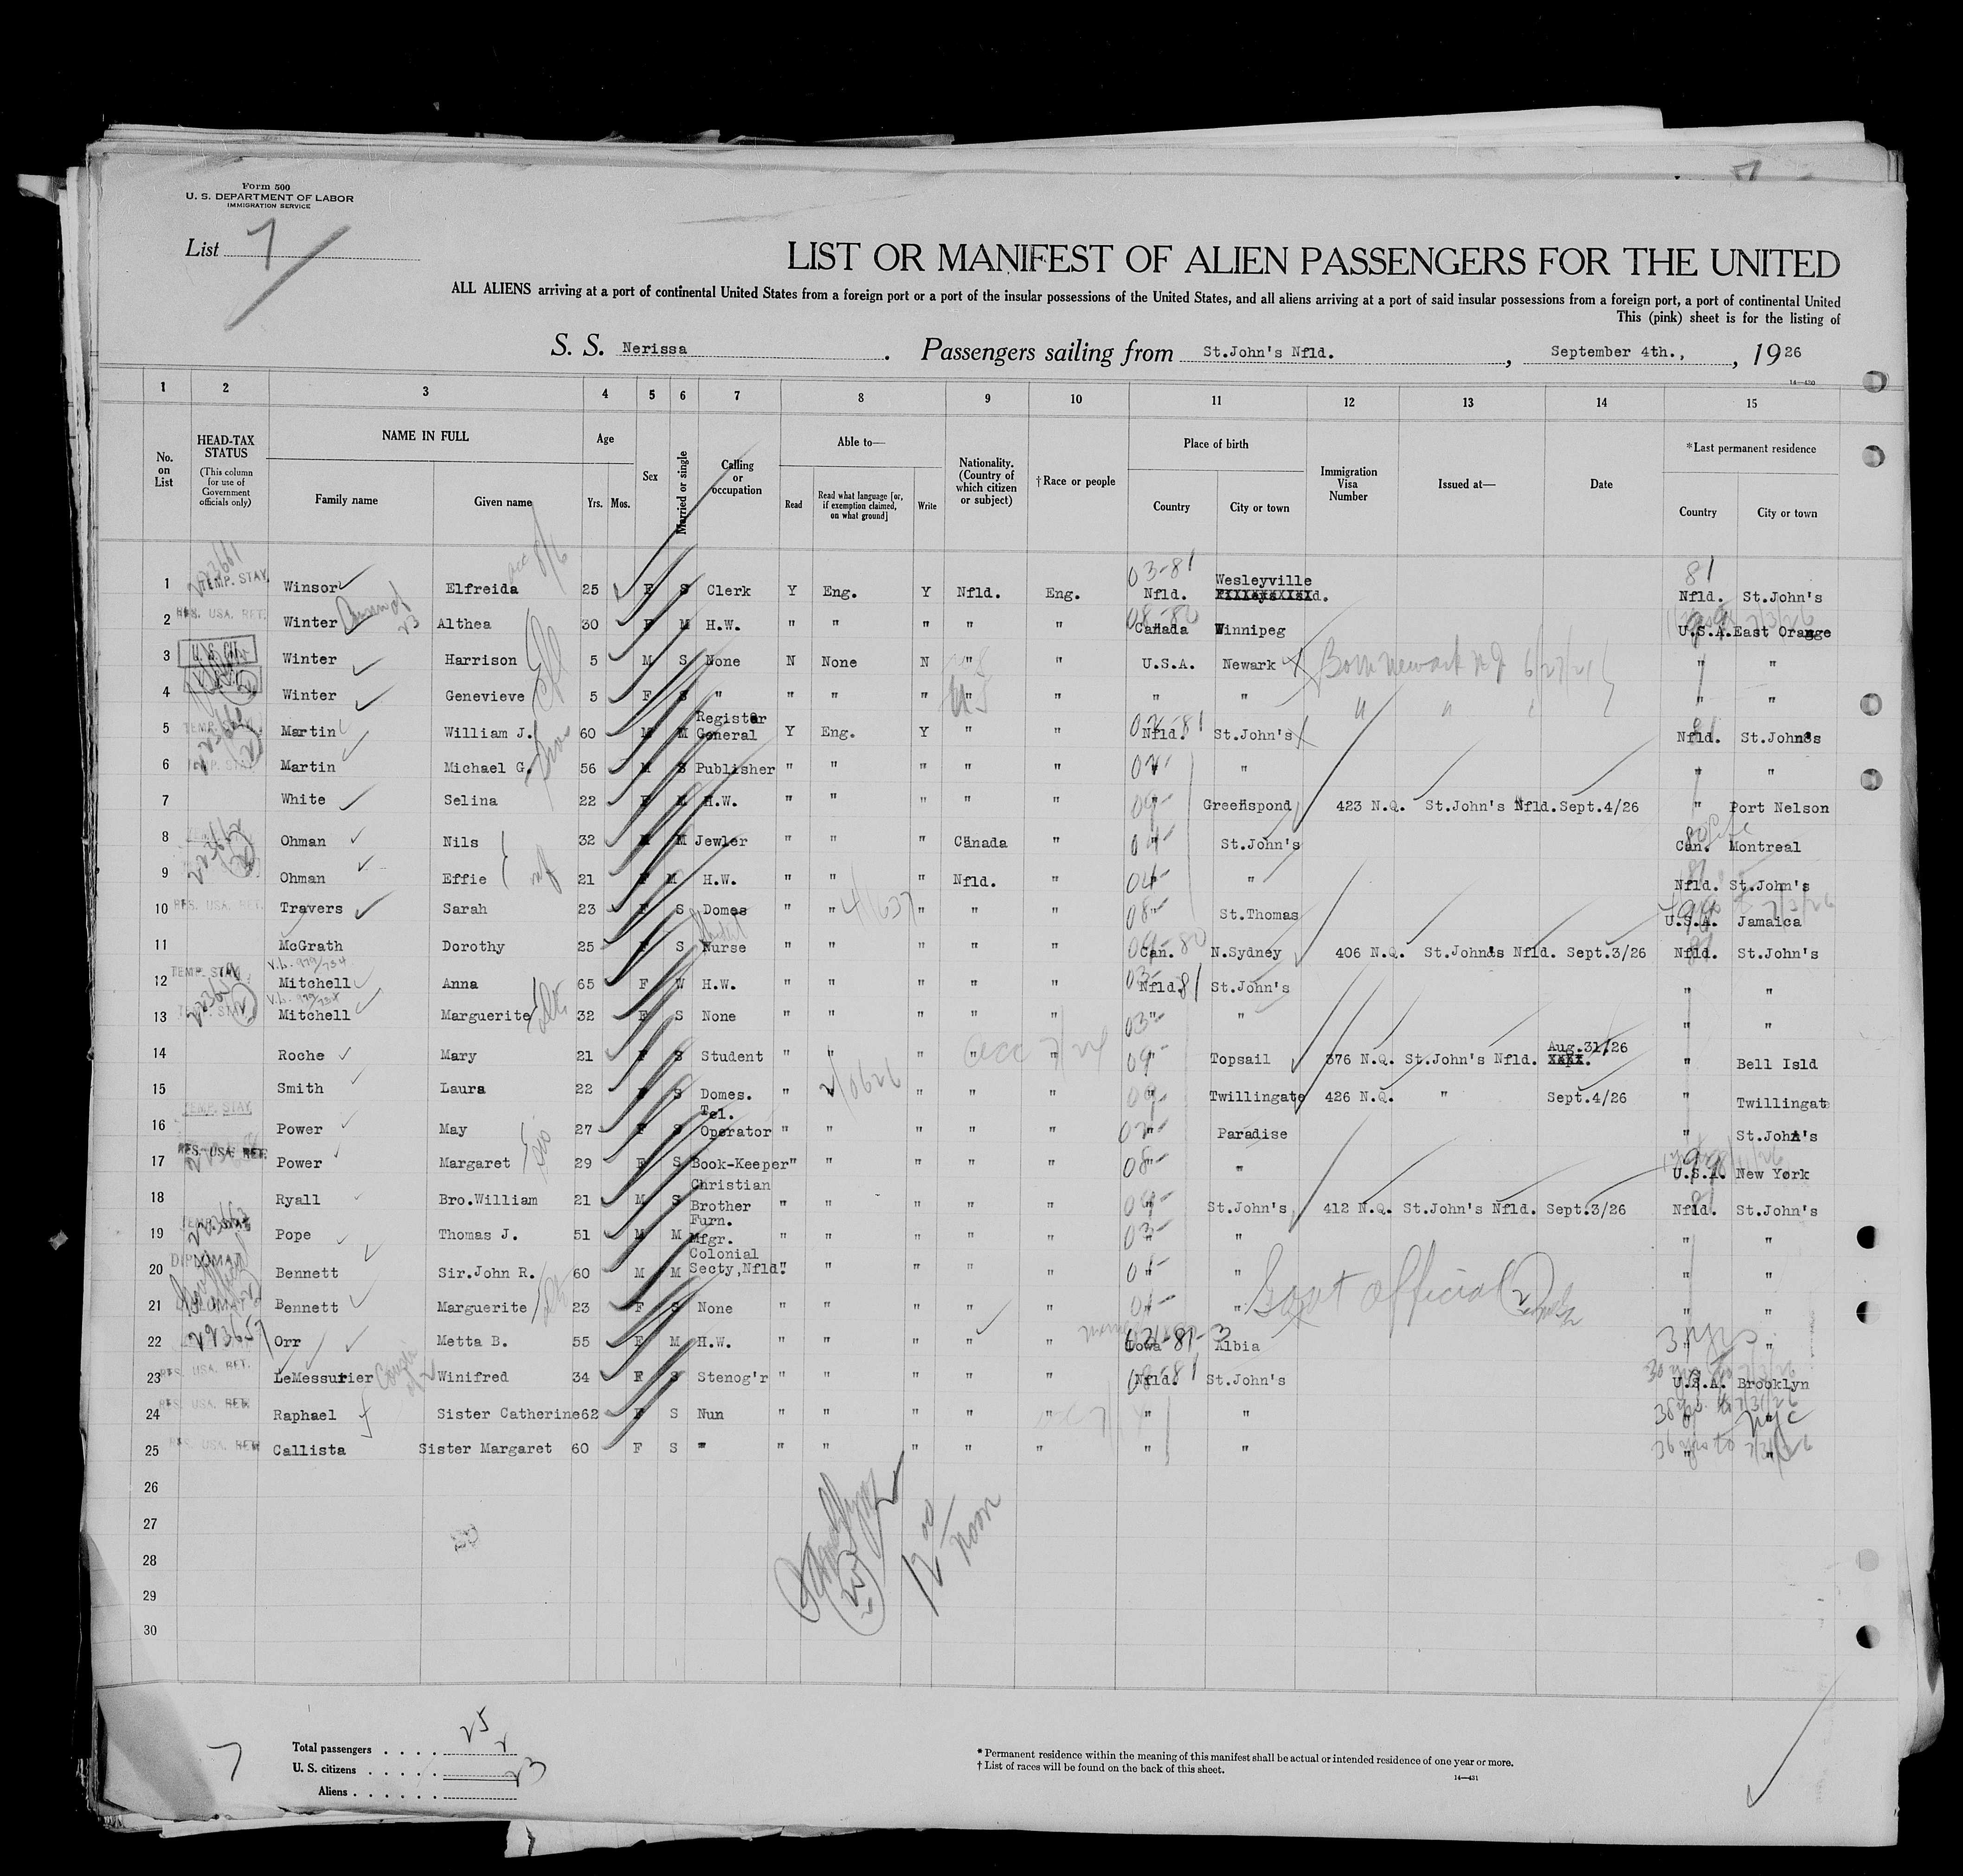 Form 500
U. S. DEPARTMENT OF LABOR
IMMIGRATION SERVICE
List 7
LIST OR MANIFEST OF ALIEN PASSENGERS FOR THE UNITED
ALL ALIENS arriving at a port of continental United States from a foreign port or a port of the insular possessions of the United States, and all aliens arriving at a port of said insular possessions from a foreign port, a port of continental United
This (pink) sheet is for the listing of
S. S. Nerissa. Passengers sailing from St.John's Nfld., September 4th., , 19 26
14—430
1 2 3 4 5 6 7 8 9 10 11 12 13 14 15
No. on List
HEAD-TAX STATUS
(This column for use of Government officials only)
NAME IN FULL
Family name
Given name
Age
Yrs. Mos.
Sex
Married or single
Calling or occupation
Able to—
Read
Read what language [or, if exemption claimed, on what ground]
Write
Nationality. (Country of which citizen or subject)
†Race or people
Place of birth
Country
City or town
Immigration Visa Number
Issued at—
Date
*Last permanent residence
Country
City or town
1 TEMP. STAY. Winsor Elfreida 25 F S Clerk Y Eng. Y Nfld. Eng. 03-81 Nfld. Wesleyville 81 Nfld. St.John's
2 RES. USA. RET. Winter Althea 30 F M H.W. " " " " " Canada Winnipeg U.S.A. East Orange
3 U.S. CIT. Winter Harrison 5 M S None N None N " " U.S.A. Newark Born Newark N.J. 6/27/21 " "
4 Winter Genevieve 5 F S " " " " US " " " " " " "
5 TEMP. STAY Martin William J. 60 M M Registar General Y Eng. Y " " Nfld. 81 St.John's Nfld. St.John's
6 TEMP. STAY Martin Michael G. 56 M S Publisher " " " " " " " " "
7 White Selina 22 F M H.W. " " " " " " Greenspond 423 N.Q. St.John's Nfld. Sept.4/26 " Port Nelson
8 Ohman Nils 32 M M Jewler " " " Canada " " St.John's Can. Montreal
9 Ohman Effie 21 F M H.W. " " " Nfld. " " Nfld. St.John's
10 RES. USA. RET. Travers Sarah 23 F S Domes " " " " " " St.Thomas U.S.A. Jamaica
11 McGrath Dorothy 25 F S Nurse " " " " " Can. N.Sydney 406 N.Q. St.John's Nfld. Sept.3/26 Nfld. St.John's
V.L. 979/734
12 TEMP. STAY Mitchell Anna 65 F W H.W. " " " " " Nfld. 81 St.John's " "
V.L. 979/734
13 TEMP. STAY Mitchell Marguerite 32 F S None " " " " " " " " "
14 Roche Mary 21 F S Student " " " " " " Topsail 376 N.Q. St.John's Nfld. Aug.31/26 " Bell Isld
15 Smith Laura 22 F S Domes. " " " " " " Twillingate 426 N.Q. " Sept.4/26 " Twillingate
16 TEMP. STAY Power May 27 F S Tel. Operator " " " " " " Paradise " St.John's
17 RES. USA. RET. Power Margaret 29 F S Book-Keeper " " " " " " " U.S.A. New York
18 Ryall Bro.William 21 M S Christian Brother " " " " " " St.John's 412 N.Q. St.John's Nfld. Sept.3/26 Nfld. St.John's
19 Pope Thomas J. 51 M M Furn. Mfgr. " " " " " " " " "
20 DIPLOMAT Bennett Sir.John R. 60 M M Colonial Secty,Nfld. " " " " " " " " "
21 DIPLOMAT Bennett Marguerite 23 F S None " " " " " " " Govt official " "
22 Orr Metta B. 55 F M H.W. " " " " " Iowa Albia 3 yrs " "
23 RES. USA. RET. LeMessurier Winifred 34 F S Stenog'r " " " " " Nfld. St.John's U.S.A. Brooklyn
24 RES. USA. RET. Raphael Sister Catherine 62 F S Nun " " " " " " " " NYC
25 RES. USA. RET. Callista Sister Margaret 60 F S " " " " " " " " " "
26
27
28
29
30
12 00 noon
7
Total passengers . . . . 25
U. S. citizens . . . . . 2
Aliens . . . . . . 23
* Permanent residence within the meaning of this manifest shall be actual or intended residence of one year or more.
† List of races will be found on the back of this sheet.
14—431